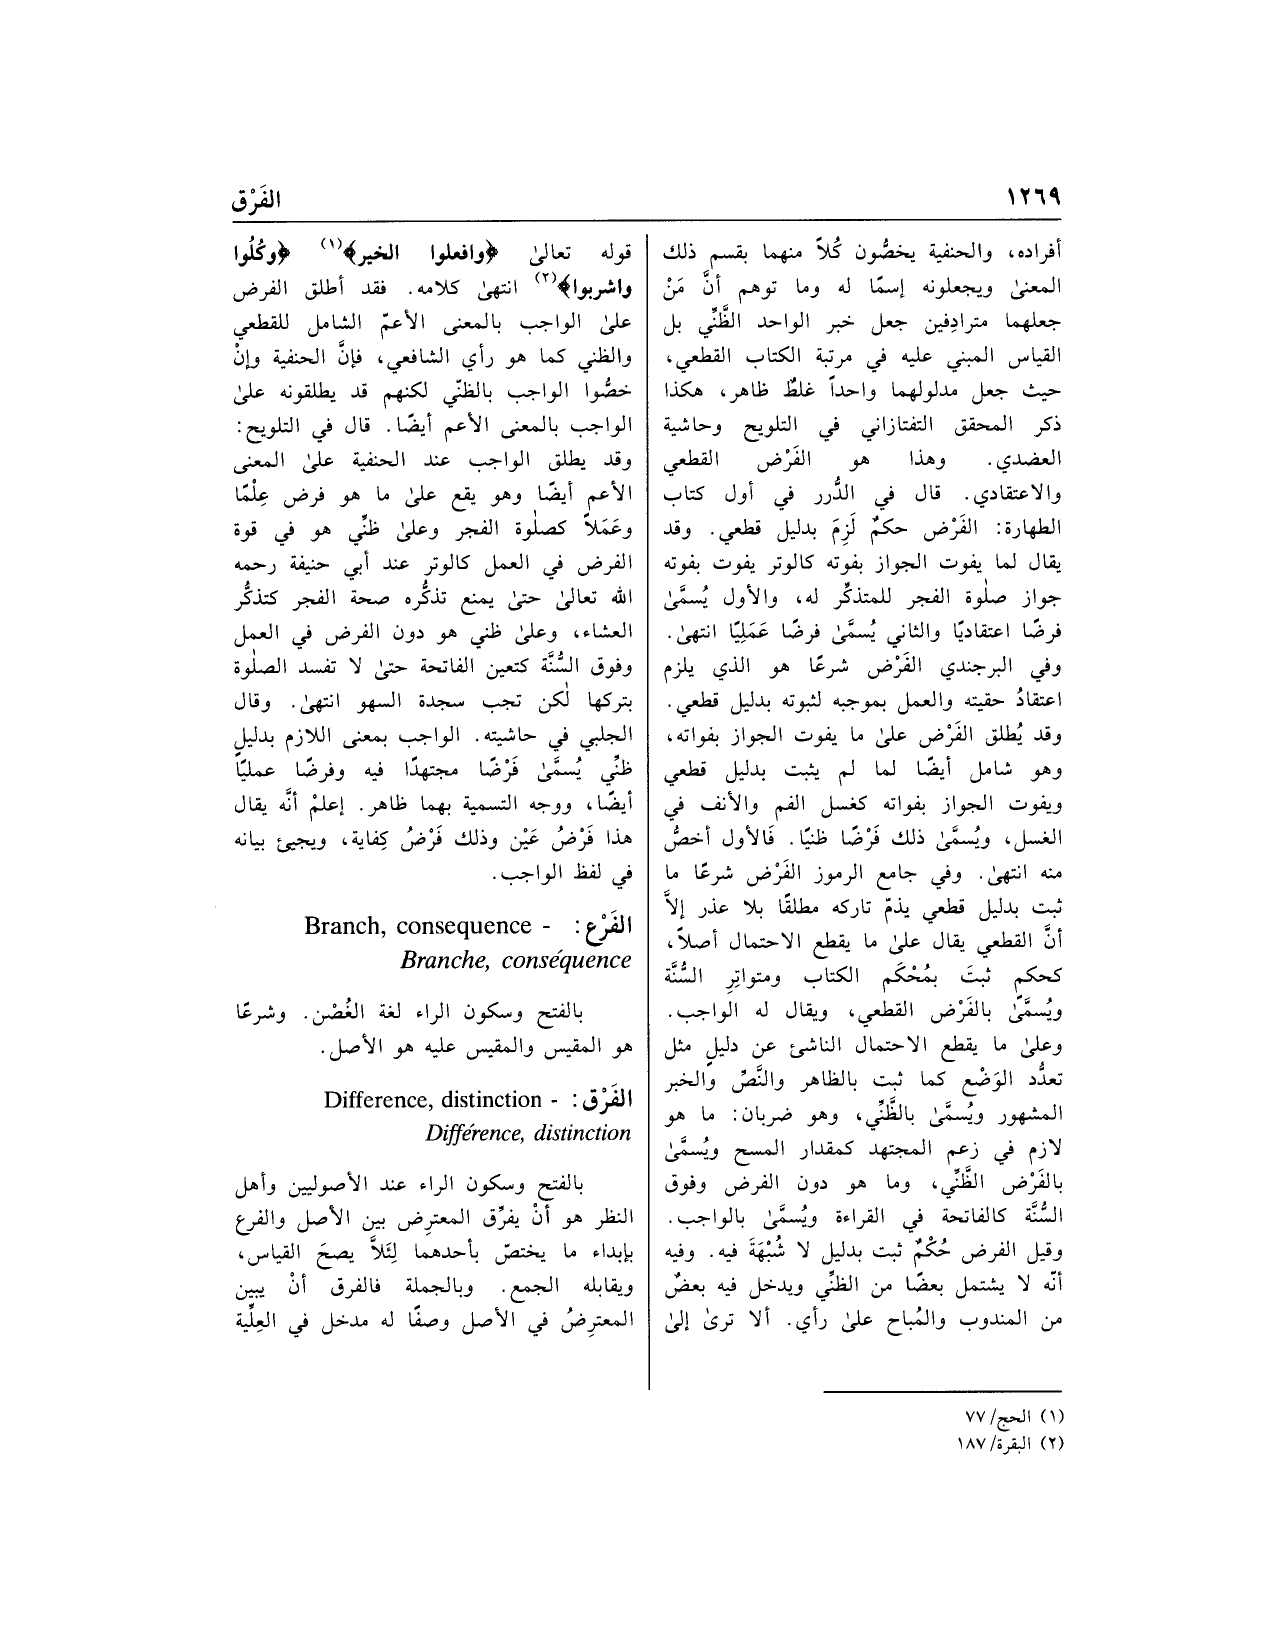 ١٢٦٩
الفَرْق
أفراده، والحنفية يخصُّون كُلاً منهما بقسم ذلك
المعنىٰ ويجعلونه إسمًا له وما توهم أنَّ مَنْ
جعلهما مترادِفين جعل خبر الواحد الظَّنِّي بل
القياس المبني عليه في مرتبة الكتاب القطعي،
حيث جعل مدلولهما واحداً غلطٌ ظاهر، هكذا
ذكر المحقق التفتازاني في التلويح وحاشية
العضدي. وهذا هو الفَرْض القطعي
والاعتقادي. قال في الدُّرر في أول كتاب
الطهارة: الفَرْض حكمٌ لَزِمَ بدليل قطعي. وقد
يقال لما يفوت الجواز بفوته كالوتر يفوت بفوته
جواز صلٰوة الفجر للمتذكِّر له، والأول يُسمَّىٰ
فرضًا اعتقاديًا والثاني يُسمَّىٰ فرضًا عَمَليًا انتهىٰ.
وفي البرجندي الفَرْض شرعًا هو الذي يلزم
اعتقادُ حقيته والعمل بموجبه لثبوته بدليل قطعي.
وقد يُطلق الفَرْض علىٰ ما يفوت الجواز بفواته،
وهو شامل أيضًا لما لم يثبت بدليل قطعي
ويفوت الجواز بفواته كغسل الفم والأنف في
الغسل، ويُسمَّىٰ ذلك فَرْضًا ظنيًا. فَالأول أخصُّ
منه انتهىٰ. وفي جامع الرموز الفَرْض شرعًا ما
ثبت بدليل قطعي يذمّ تاركه مطلقًا بلا عذر إلاَّ
أنَّ القطعي يقال علىٰ ما يقطع الاحتمال أصلاً،
كحكم ثبتَ بمُحْكَم الكتاب ومتواتِرِ السُّنَّة
ويُسمَّىٰ بالفَرْض القطعي، ويقال له الواجب.
وعلىٰ ما يقطع الاحتمال الناشئ عن دليلٍ مثل
تعدُّد الوَضْع كما ثبت بالظاهر والنَّصِّ والخبر
المشهور ويُسمَّىٰ بالظَّنِّي، وهو ضربان: ما هو
لازم في زعم المجتهد كمقدار المسح ويُسمَّىٰ
بالفَرْض الظَّنِّي، وما هو دون الفرض وفوق
السُّنَّة كالفاتحة في القراءة ويُسمَّىٰ بالواجب.
وقيل الفرض حُكْمٌ ثبت بدليل لا شُبْهَةَ فيه. وفيه
أنّه لا يشتمل بعضًا من الظنِّي ويدخل فيه بعضٌ
من المندوب والمُباح علىٰ رأي. ألا ترىٰ إلىٰ
قوله تعالىٰ ﴿وافعلوا الخير﴾(١) ﴿وكُلُوا
واشربوا﴾(٢) انتهىٰ كلامه. فقد أطلق الفرض
علىٰ الواجب بالمعنى الأعمّ الشامل للقطعي
والظني كما هو رأي الشافعي، فإنَّ الحنفية وإنْ
خصُّوا الواجب بالظنّي لكنهم قد يطلقونه علىٰ
الواجب بالمعنى الأعم أيضًا. قال في التلويح:
وقد يطلق الواجب عند الحنفية علىٰ المعنى
الأعم أيضًا وهو يقع علىٰ ما هو فرض عِلْمًا
وعَمَلاً كصلٰوة الفجر وعلىٰ ظنِّي هو في قوة
الفرض في العمل كالوتر عند أبي حنيفة رحمه
الله تعالىٰ حتىٰ يمنع تذكُّره صحة الفجر كتذكُّر
العشاء، وعلىٰ ظني هو دون الفرض في العمل
وفوق السُّنَّة كتعين الفاتحة حتىٰ لا تفسد الصلٰوة
بتركها لٰكن تجب سجدة السهو انتهىٰ. وقال
الجلبي في حاشيته. الواجب بمعنى اللازم بدليلٍ
ظنِّي يُسمَّىٰ فَرْضًا مجتهدًا فيه وفرضًا عمليًا
أيضًا، ووجه التسمية بهما ظاهر. إعلمْ أنَّه يقال
هذا فَرْضُ عَيْن وذلك فَرْضُ كِفاية، ويجيئ بيانه
في لفظ الواجب.
الفَرْع: - Branch, consequence
Branche, conséquence
بالفتح وسكون الراء لغة الغُصْن. وشرعًا
هو المقيس والمقيس عليه هو الأصل.
الفَرْق: - Difference, distinction
Différence, distinction
بالفتح وسكون الراء عند الأصوليين وأهل
النظر هو أنْ يفرِّق المعترِض بين الأصل والفرع
بإبداء ما يختصّ بأحدهما لِئَلاَّ يصحَ القياس،
ويقابله الجمع. وبالجملة فالفرق أنْ يبين
المعترِضُ في الأصل وصفًا له مدخل في العِلِّية
(١) الحج/ ٧٧
(٢) البقرة/ ١٨٧